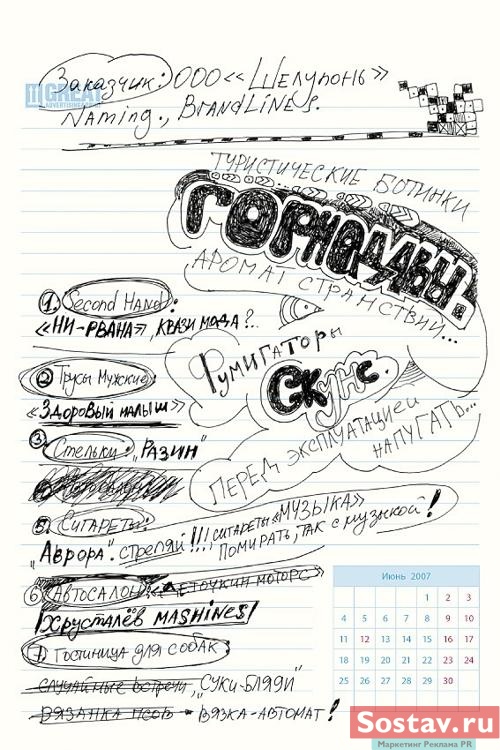 GREAT
ADVERTISING
Заказчик: ООО «Шелупонь»
Naming., BRANDLINES.
ТУРИСТИЧЕСКИЕ БОТИНКИ
АРОМАТ СТРАНСТВИЙ...
1. Second HAND:
«НИ-РВАНА», КВАЗИ МОДА?..
Фумигаторы
СКУНС.
ПЕРЕД ЭКСПЛУАТАЦИЕЙ
НАПУГАТЬ...
2. Трусы Мужские:
«Здоровый малыш»
3. Стельки: „РАЗИН"
5. СИГАРЕТЫ:
„АВРОРА". СТРЕЛЯЙ!!! СИГАРЕТЫ «МУЗЫКА»
ПОМИРАТЬ, ТАК С МУЗЫКОЙ!
6. АВТОСАЛОН: «ЛЕТОЧКИН МОТОРС»
ХРУСТАЛЁВ MASHINES!
7. ГОСТИНИЦА ДЛЯ СОБАК
СЛУЧАЙНЫЕ ВСТРЕЧИ, „СУКИ-БЛЯДИ"
ВЯЗАНКА ПСОВ - ВЯЗКА-АВТОМАТ!
Июнь 2007
1 2 3
4 5 6 7 8 9 10
11 12 13 14 15 16 17
18 19 20 21 22 23 24
25 26 27 28 29 30
Sostav.ru
Маркетинг Реклама PR